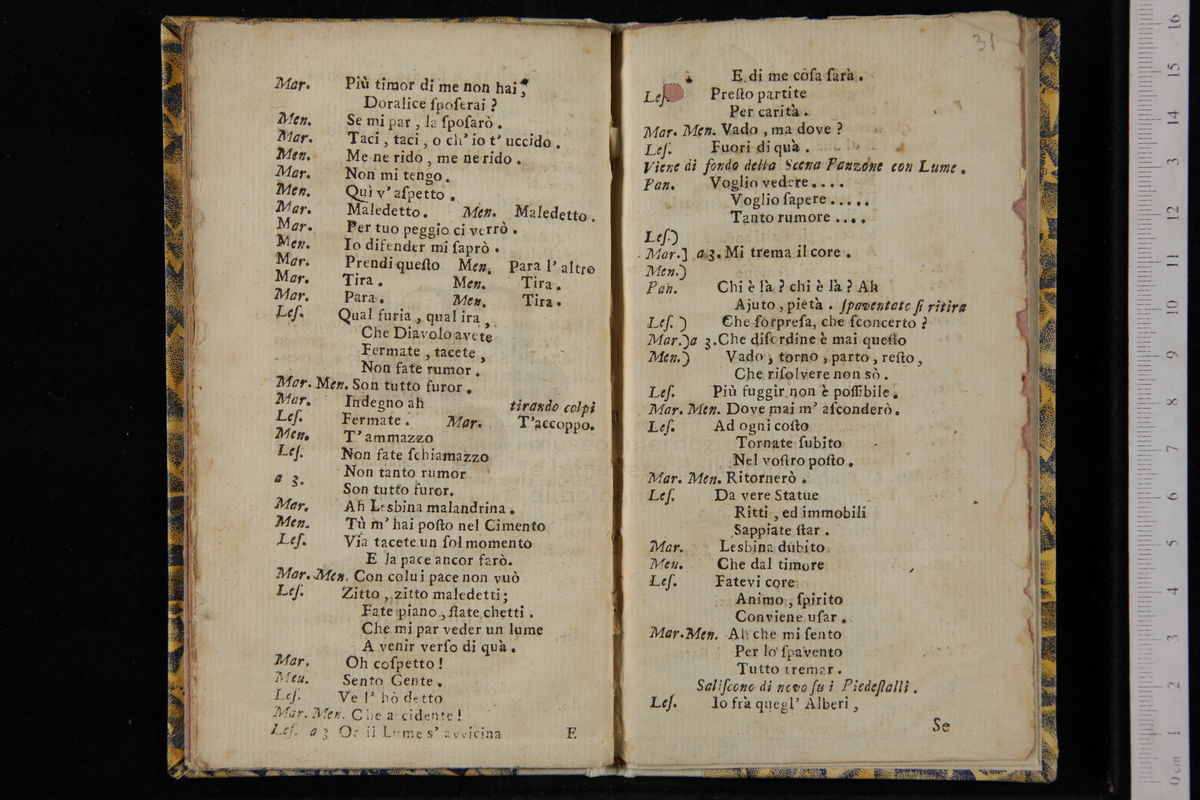 Mar. Più timor di me non hai,
Doralice ſpoſerai ?
Men. Se mi par , la ſpoſarò .
Mar. Taci , taci , o ch' io t' uccido .
Men. Me ne rido , me ne rido .
Mar. Non mi tengo .
Men. Quì v' aſpetto .
Mar. Maledetto . Men. Maledetto .
Mar. Per tuo peggio ci verrò .
Men. Io difender mi ſaprò .
Mar. Prendi queſto Men. Para l' altro
Mar. Tira . Men. Tira .
Mar. Para . Men. Tira .
Leſ. Qual furia , qual ira ,
Che Diavolo avete
Fermate , tacete ,
Non fate rumor .
Mar. Men. Son tutto furor .
Mar. Indegno ah tirando colpi
Leſ. Fermate . Mar. T'accoppo.
Men. T' ammazzo
Leſ. Non fate ſchiamazzo
Non tanto rumor
a 3. Son tutto furor.
Mar. Ah Lesbina malandrina .
Men. Tù m' hai poſto nel Cimento
Leſ. Via tacete un ſol momento
E la pace ancor farò.
Mar. Men. Con colui pace non vuò
Leſ. Zitto , zitto maledetti;
Fate piano , ſtate chetti .
Che mi par veder un lume
A venir verſo di quà .
Mar. Oh coſpetto !
Men. Sento Gente .
Leſ. Ve l' hò detto
Mar. Men. Che accidente !
Leſ. a 3 Or il Lume s' avvicina
E
31
E di me coſa ſarà .
Leſ. Preſto partite
Per carità .
Mar. Men. Vado , ma dove ?
Leſ. Fuori di quà .
Viene di fondo della Scena Panzone con Lume .
Pan. Voglio vedere . . . .
Voglio ſapere . . . . .
Tanto rumore . . . .
Leſ.)
Mar.] a 3. Mi trema il core .
Men.)
Pan. Chi è là ? chi è là ? Ah
Ajuto , pietà . ſpaventato ſi ritira
Leſ. ) Che ſorpreſa, che ſconcerto ?
Mar.)a 3.Che diſordine è mai queſto
Men.) Vado , torno , parto , reſto ,
Che riſolvere non sò .
Leſ. Più fuggir non è poſſibile .
Mar. Men. Dove mai m' aſconderò .
Leſ. Ad ogni coſto
Tornate ſubito
Nel voſtro poſto .
Mar. Men. Ritornerò .
Leſ. Da vere Statue
Ritti , ed immobili
Sappiate ſtar .
Mar. Lesbina dubito
Men. Che dal timore
Leſ. Fatevi core
Animo , ſpirito
Conviene uſar .
Mar.Men. Ah che mi ſento
Per lo ſpavento
Tutto tremar .
Saliſcono di novo ſu i Piedeſtalli .
Leſ. Io frà quegl' Alberi ,
Se
0 cm 1 2 3 4 5 6 7 8 9 10 11 12 13 14 15 16